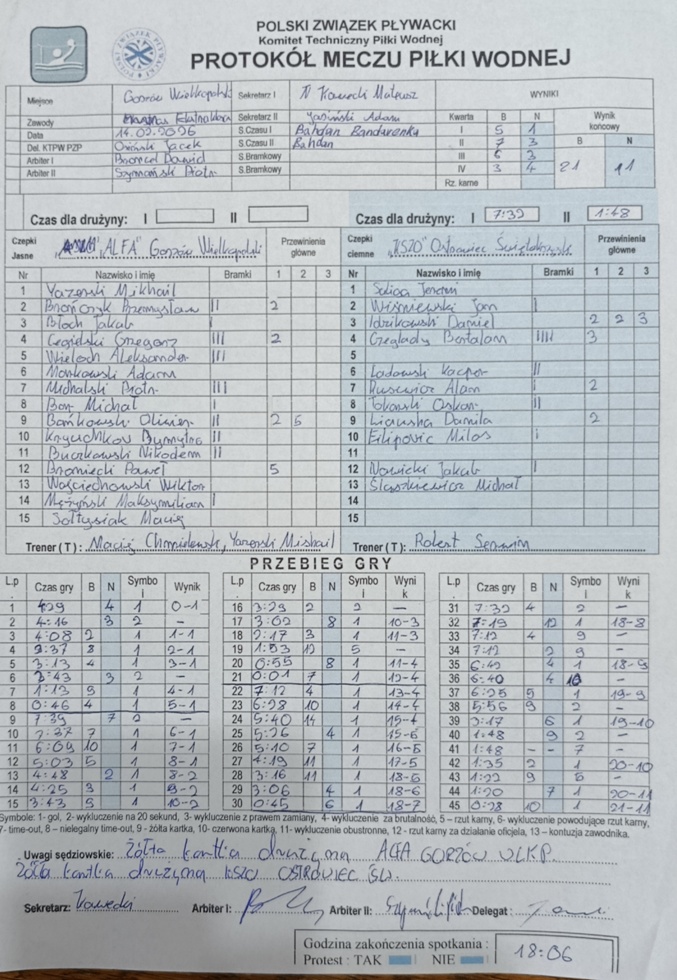 POLSKI ZWIĄZEK PŁYWACKI
Komitet Techniczny Piłki Wodnej
PROTOKÓŁ MECZU PIŁKI WODNEJ
Miejsce Gorzów Wielkopolski Sekretarz I Kawecki Mateusz WYNIKI
Zawody Sekretarz II Adam Kwarta B N Wynik końcowy
Data 14.02.2026 S.Czasu I Bahdan Bandarenka I 5 1 B N
Del. KTPW PZP Jacek S.Czasu II Bahdan II 7 3
Arbiter I Dawid S.Bramkowy III 6 3 21 11
Arbiter II Piotr S.Bramkowy IV 3 4
Rz. karne
Czas dla drużyny: I II Czas dla drużyny: I 7:32 II 1:48
Czepki Jasne "ALFA" Gorzów Wielkopolski Przewinienia główne Czepki ciemne "KSZO" Ostrowiec Świętokrzyski Przewinienia główne
Nr Nazwisko i imię Bramki 1 2 3 Nr Nazwisko i imię Bramki 1 2 3
1 Yazerski Mikhail 1
2 Przemysław II 2 2 Wiśniewski Jan I
3 Błoch Jakub 3 Idzikowski Daniel 2 2 3
4 Grzegorz III 2 4 Czeglady Bertalam IIII 3
5 Wieloch Aleksander III 5
6 Mankowski Adam 6 Ladowski Kacper II
7 Michalski Piotr III 7 Adam I 2
8 Michał I 8 Oskar II
9 Bańkowski Oliwier II 2 6 9 Danila 2
10 Kryuchkov Dymytro II 10 Filipovic Milos I
11 Buczkowski Nikodem II 11
12 Broniecki Paweł 5 12 Nowicki Jakub I
13 Wojciechowski Wiktor 13 Ślaszkiewicz Michał
14 Mężyński Maksymilian I 14
15 Sołtysiak Maciej 15
Trener (T): Maciej Chmielewski, Yazerski Mikhail Trener (T): Robert Serwin
PRZEBIEG GRY
L.p. Czas gry B N Symbol Wynik L.p. Czas gry B N Symbol Wynik L.p Czas gry B N Symbol Wynik
1 4:29 4 1 0-1 16 3:29 2 2 – 31 7:32 4 2 –
2 4:16 3 2 – 17 3:02 8 1 10-3 32 7:19 12 1 18-8
3 4:08 2 1 1-1 18 2:17 3 1 11-3 33 7:12 4 9 –
4 3:37 8 1 2-1 19 1:53 12 5 – 34 7:12 2 9 –
5 3:13 4 1 3-1 20 0:55 8 1 11-4 35 6:42 4 1 18-9
6 2:43 3 2 – 21 0:01 7 1 12-4 36 6:40 4 –
7 1:13 5 1 4-1 22 7:12 4 1 13-4 37 6:25 5 1 19-9
8 0:46 4 1 5-1 23 6:28 10 1 14-4 38 5:56 9 2 –
9 7:39 7 2 – 24 5:40 14 1 15-4 39 3:17 6 1 19-10
10 7:37 7 1 6-1 25 5:26 4 1 15-5 40 1:48 9 2 –
11 6:09 10 1 7-1 26 5:10 7 1 16-5 41 1:48 – – 7 –
12 5:03 5 1 8-1 27 4:19 11 1 17-5 42 1:35 2 1 20-10
13 4:48 2 1 8-2 28 3:16 11 1 18-5 43 1:22 9 6 –
14 4:25 3 1 9-2 29 3:06 4 1 18-6 44 1:20 7 1 20-11
15 3:43 5 1 10-2 30 0:45 6 1 18-7 45 0:28 10 1 21-11
Symbole: 1- gol, 2- wykluczenie na 20 sekund, 3- wykluczenie z prawem zamiany, 4- wykluczenie za brutalność, 5 – rzut karny, 6- wykluczenie powodujące rzut karny,
7- time-out, 8 – nielegalny time-out, 9 - żółta kartka, 10- czerwona kartka, 11- wykluczenie obustronne, 12 - rzut karny za działanie oficjela, 13 – kontuzja zawodnika.
Uwagi sędziowskie: Żółta kartka drużyna ALFA GORZÓW WLKP.
Żółta kartka drużyna KSZO OSTROWIEC ŚW.
Sekretarz: Kawecki Arbiter I: Arbiter II: Delegat
Godzina zakończenia spotkania : 18:06
Protest : TAK NIE